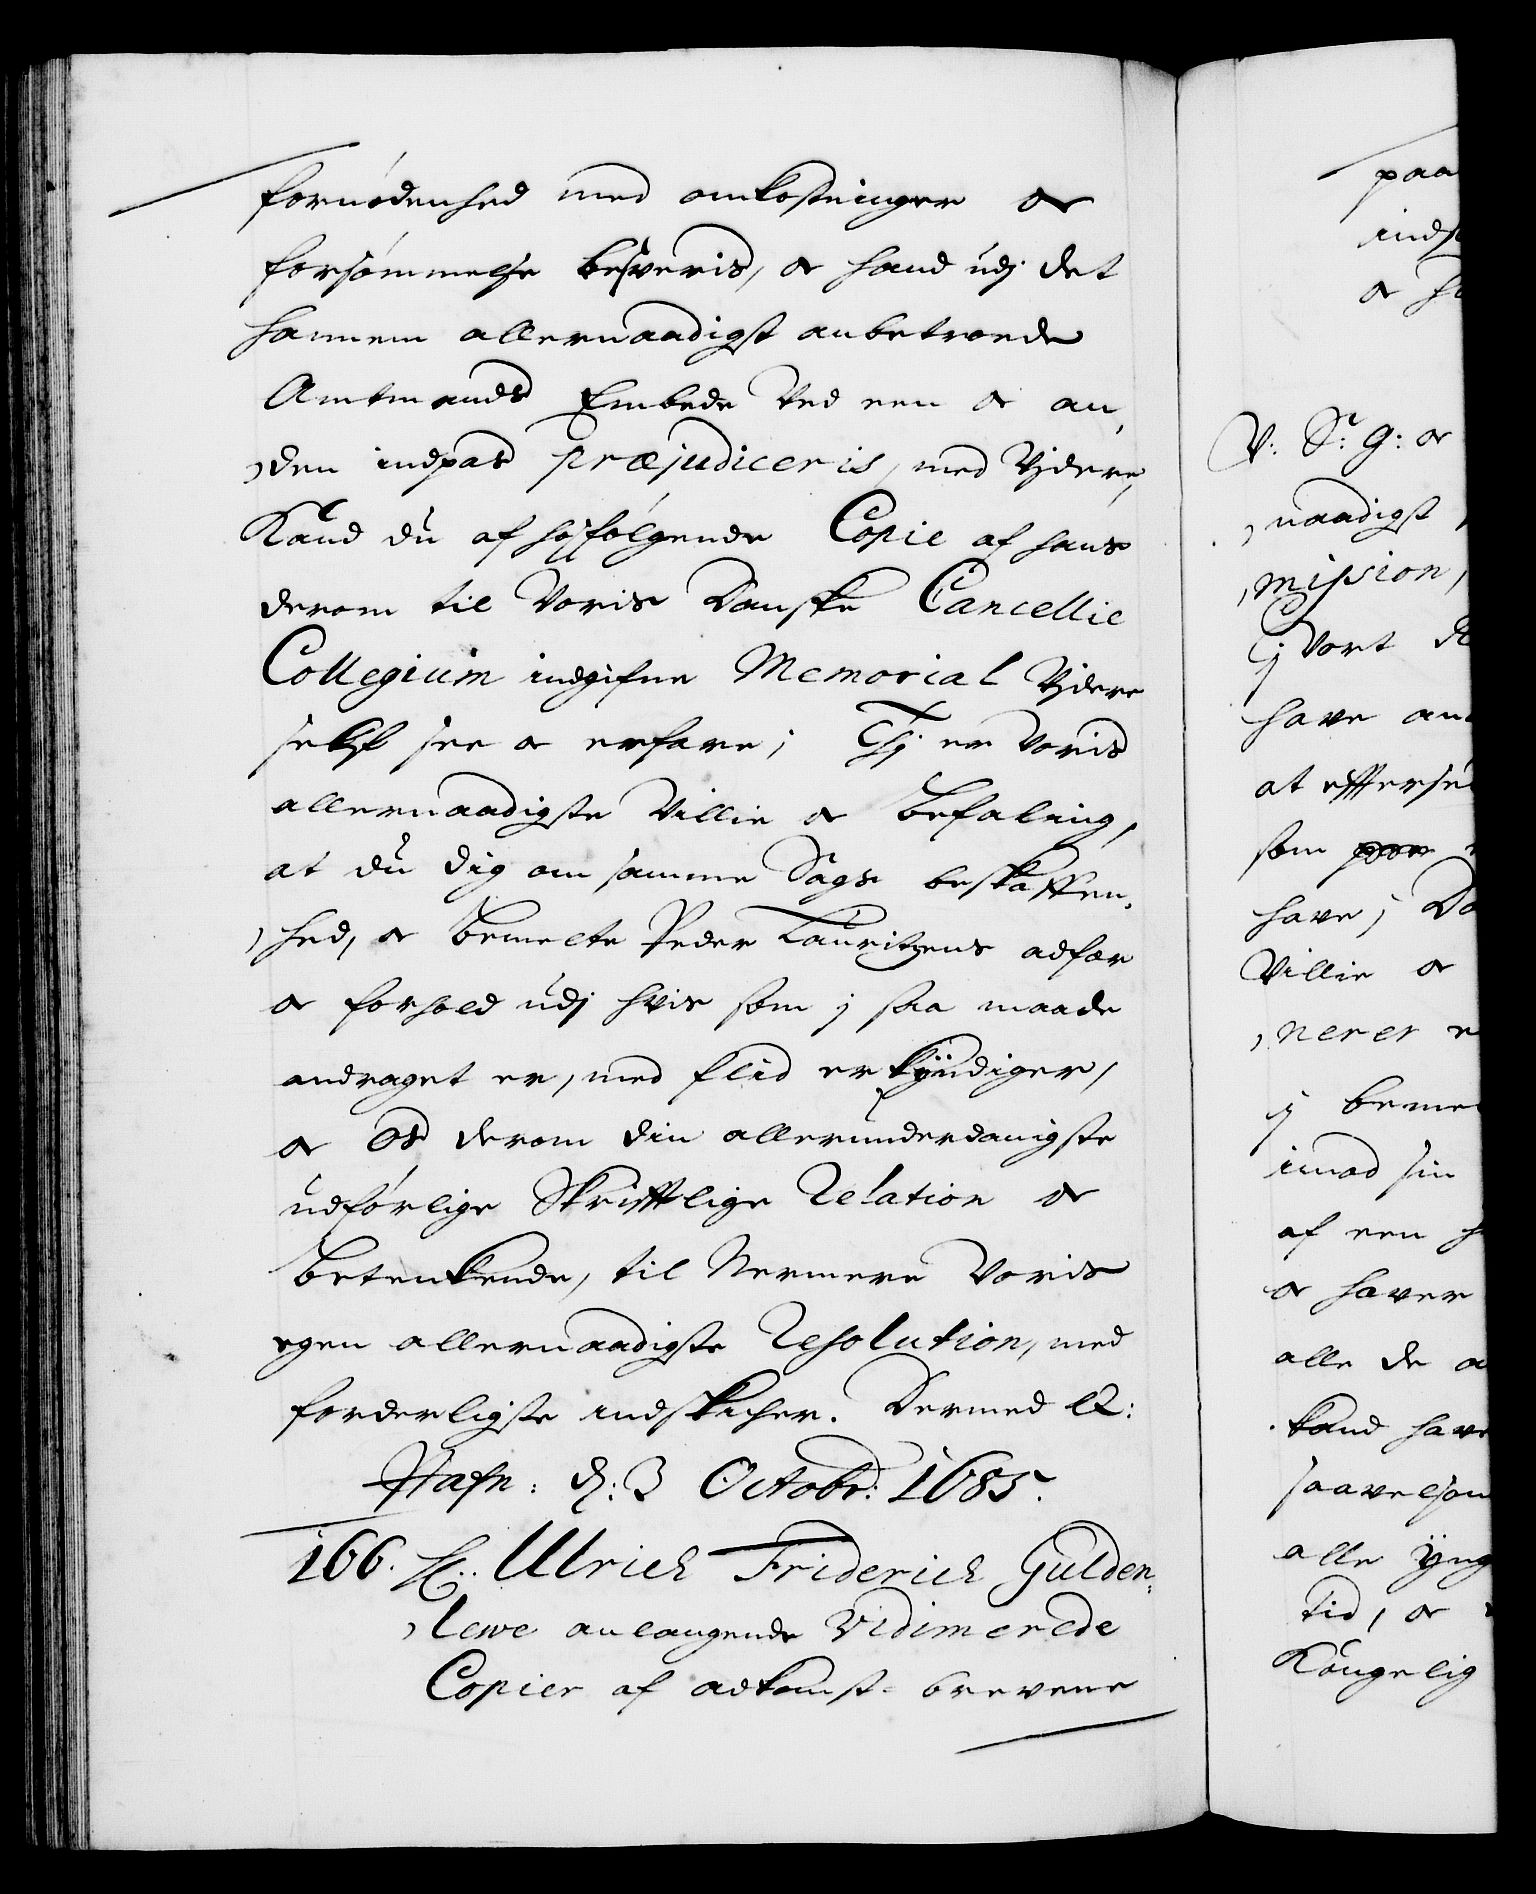 fornødenhed med omkostninger oc
forsømmelse besveris, oc hand udj det
hannem allernaadigst anbetroede
Amtmands Embede Ved een oc an,
,den indpas præjudiceris, med Vjdere,
Kand du af hosfølgende Copie af hans
derom til Voris Danske Cancellie
Collegium indgifne Memorial Vjdere
self see oc erfare; Thj er Voris
allernaadigste Villie oc befaling,
at du dig om samme Sags beskaffen,
,hed, oc bemelte Peder Lauritzens adfær
oc forhold udj hvis som j saa maade
andraget er, med flid erkyndiger,
oc Os derom din allerunderdanigste
udførlige Skrifftlige Relation oc
betenkende, til Nermere Voris
egen allernaadigste Resolution, med
forderligste indskicker. Dermed &:
Hafn: d: 3 Octobr: 1685.
166. H: Ulrich Friderich Gulden,
,lewe anlangende Vidimerede
Copier af adkomst-brevene
paa
V. S: G: oc
,naadigst
,mission,
vort
have
at effterse
som
have;
Villie oc
,nerer
j
imod sin
af een
oc haver
alle de
kand have
saavelsom
alle
tid, oc
Kongelig